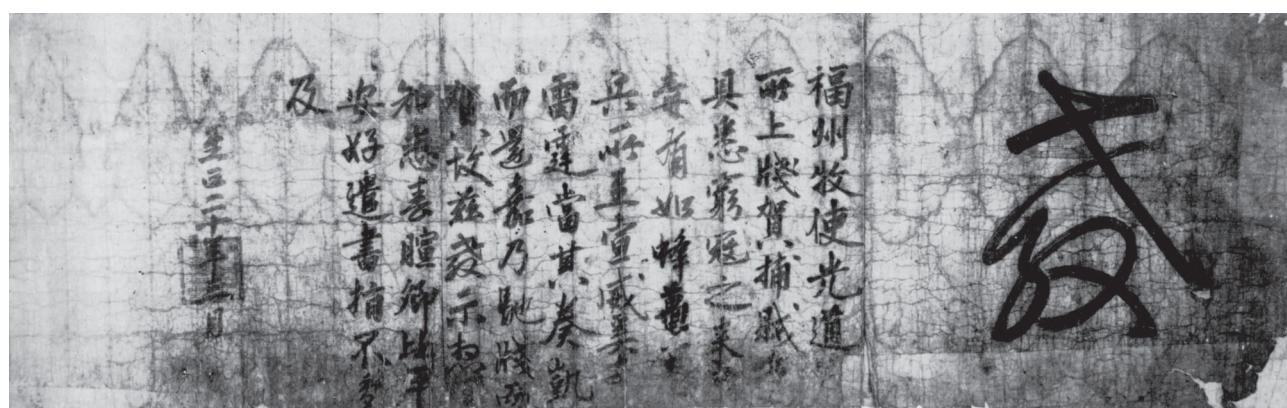 敎
福州牧使光道
所上牋賀捕
具悉窮寇之来
毒有如蜂蠆
兵所至宣威
雷霆當甘奏凱
而還嘉乃馳牋
故茲敎示想
知悉春暄卿比平
安好遣書指不多
及
至正二十年二月